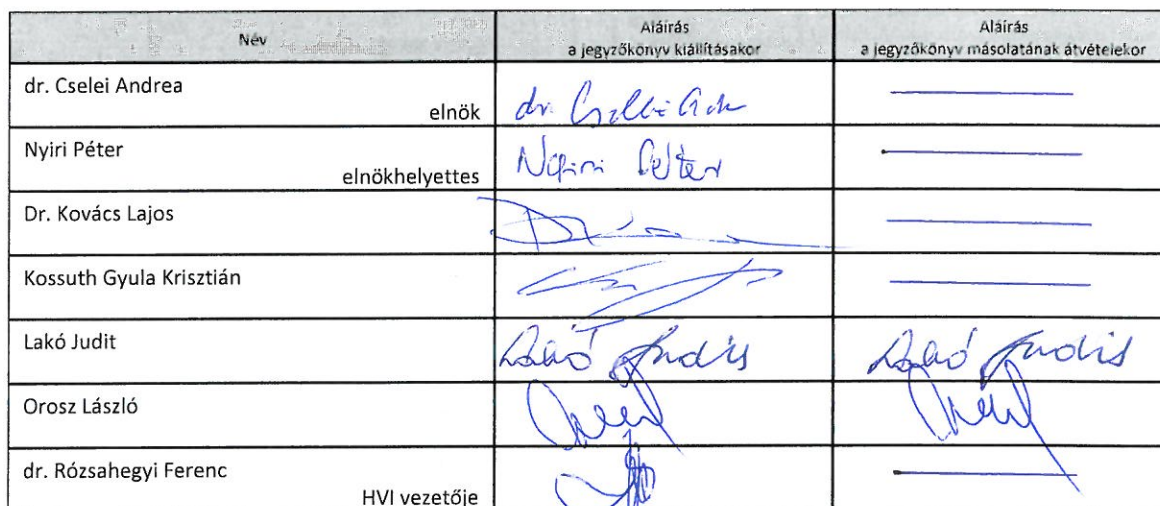 Név
Aláírás
a jegyzőkönyv kiállításakor
Aláírás
a jegyzőkönyv másolatának átvételekor
dr. Cselei Andrea
elnök
dr.
Nyiri Péter
elnökhelyettes
Nyiri Péter
Dr. Kovács Lajos
Kossuth Gyula Krisztián
Lakó Judit
Lakó Judit
Lakó Judit
Orosz László
dr. Rózsahegyi Ferenc
HVI vezetője